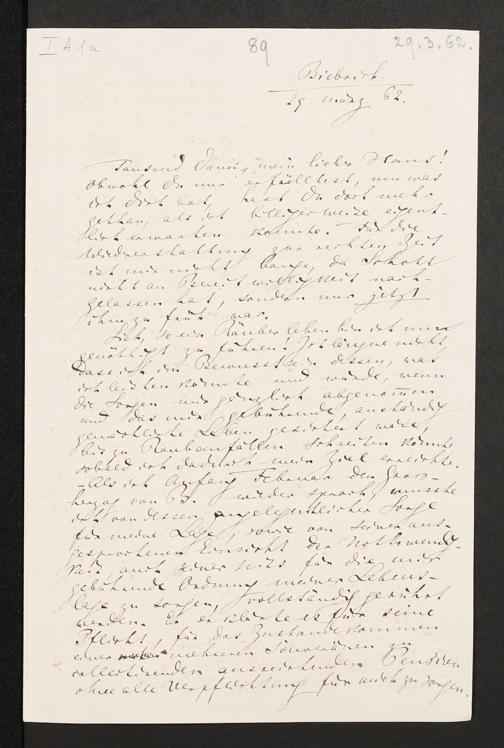 I A 1a
89
29.3.62.
Biebrich.
29 März 62.
Tausend Dank, mein lieber Hans!
Obwohl Du nur erfülltest, um was
ich Dich bat, hast Du doch mehr
gethan, als ich billiger weise eigent-
lich erwarten konnte. Für die
Wiedererstattung zur rechten Zeit
ist mir nicht bange, da Schott
nicht an Bereitwilligkeit nach-
gelassen hat, sondern nur jetzt
ihm zu früh war.
Sieh, so ein Räuberleben bin ich nun
genöthigt zu führen! Ich läugne nicht,
dass ich im Bewusstsein dessen, was
ich leisten könnte und würde, wenn
die Sorgen mir gänzlich abgenommen
und das mir gebührende, anständig
gemächliche Leben gesichert wäre,
bis zu Raubanfällen schreiten könnte,
sobald ich dadurch mein Ziel erreichte.
– Als ich Anfang Februar den Gross-
herzog von B. wieder sprach, musste
ich von dessen angelegentlicher Sorge
für meine Lage, sowie von seiner aus-
gesprochenen Einsicht der Nothwendig-
keit, auch seiner seits für die mir
gebührende Ordnung meiner Lebens-
lage zu sorgen, vollständig gerührt
werden. Er erklärte es für seine
Pflicht, für das Zustandekommen
einer mehreren Souveränen zu
collectirenden ausreichenden Pension
ohne alle Verpflichtung für mich zu sorgen.